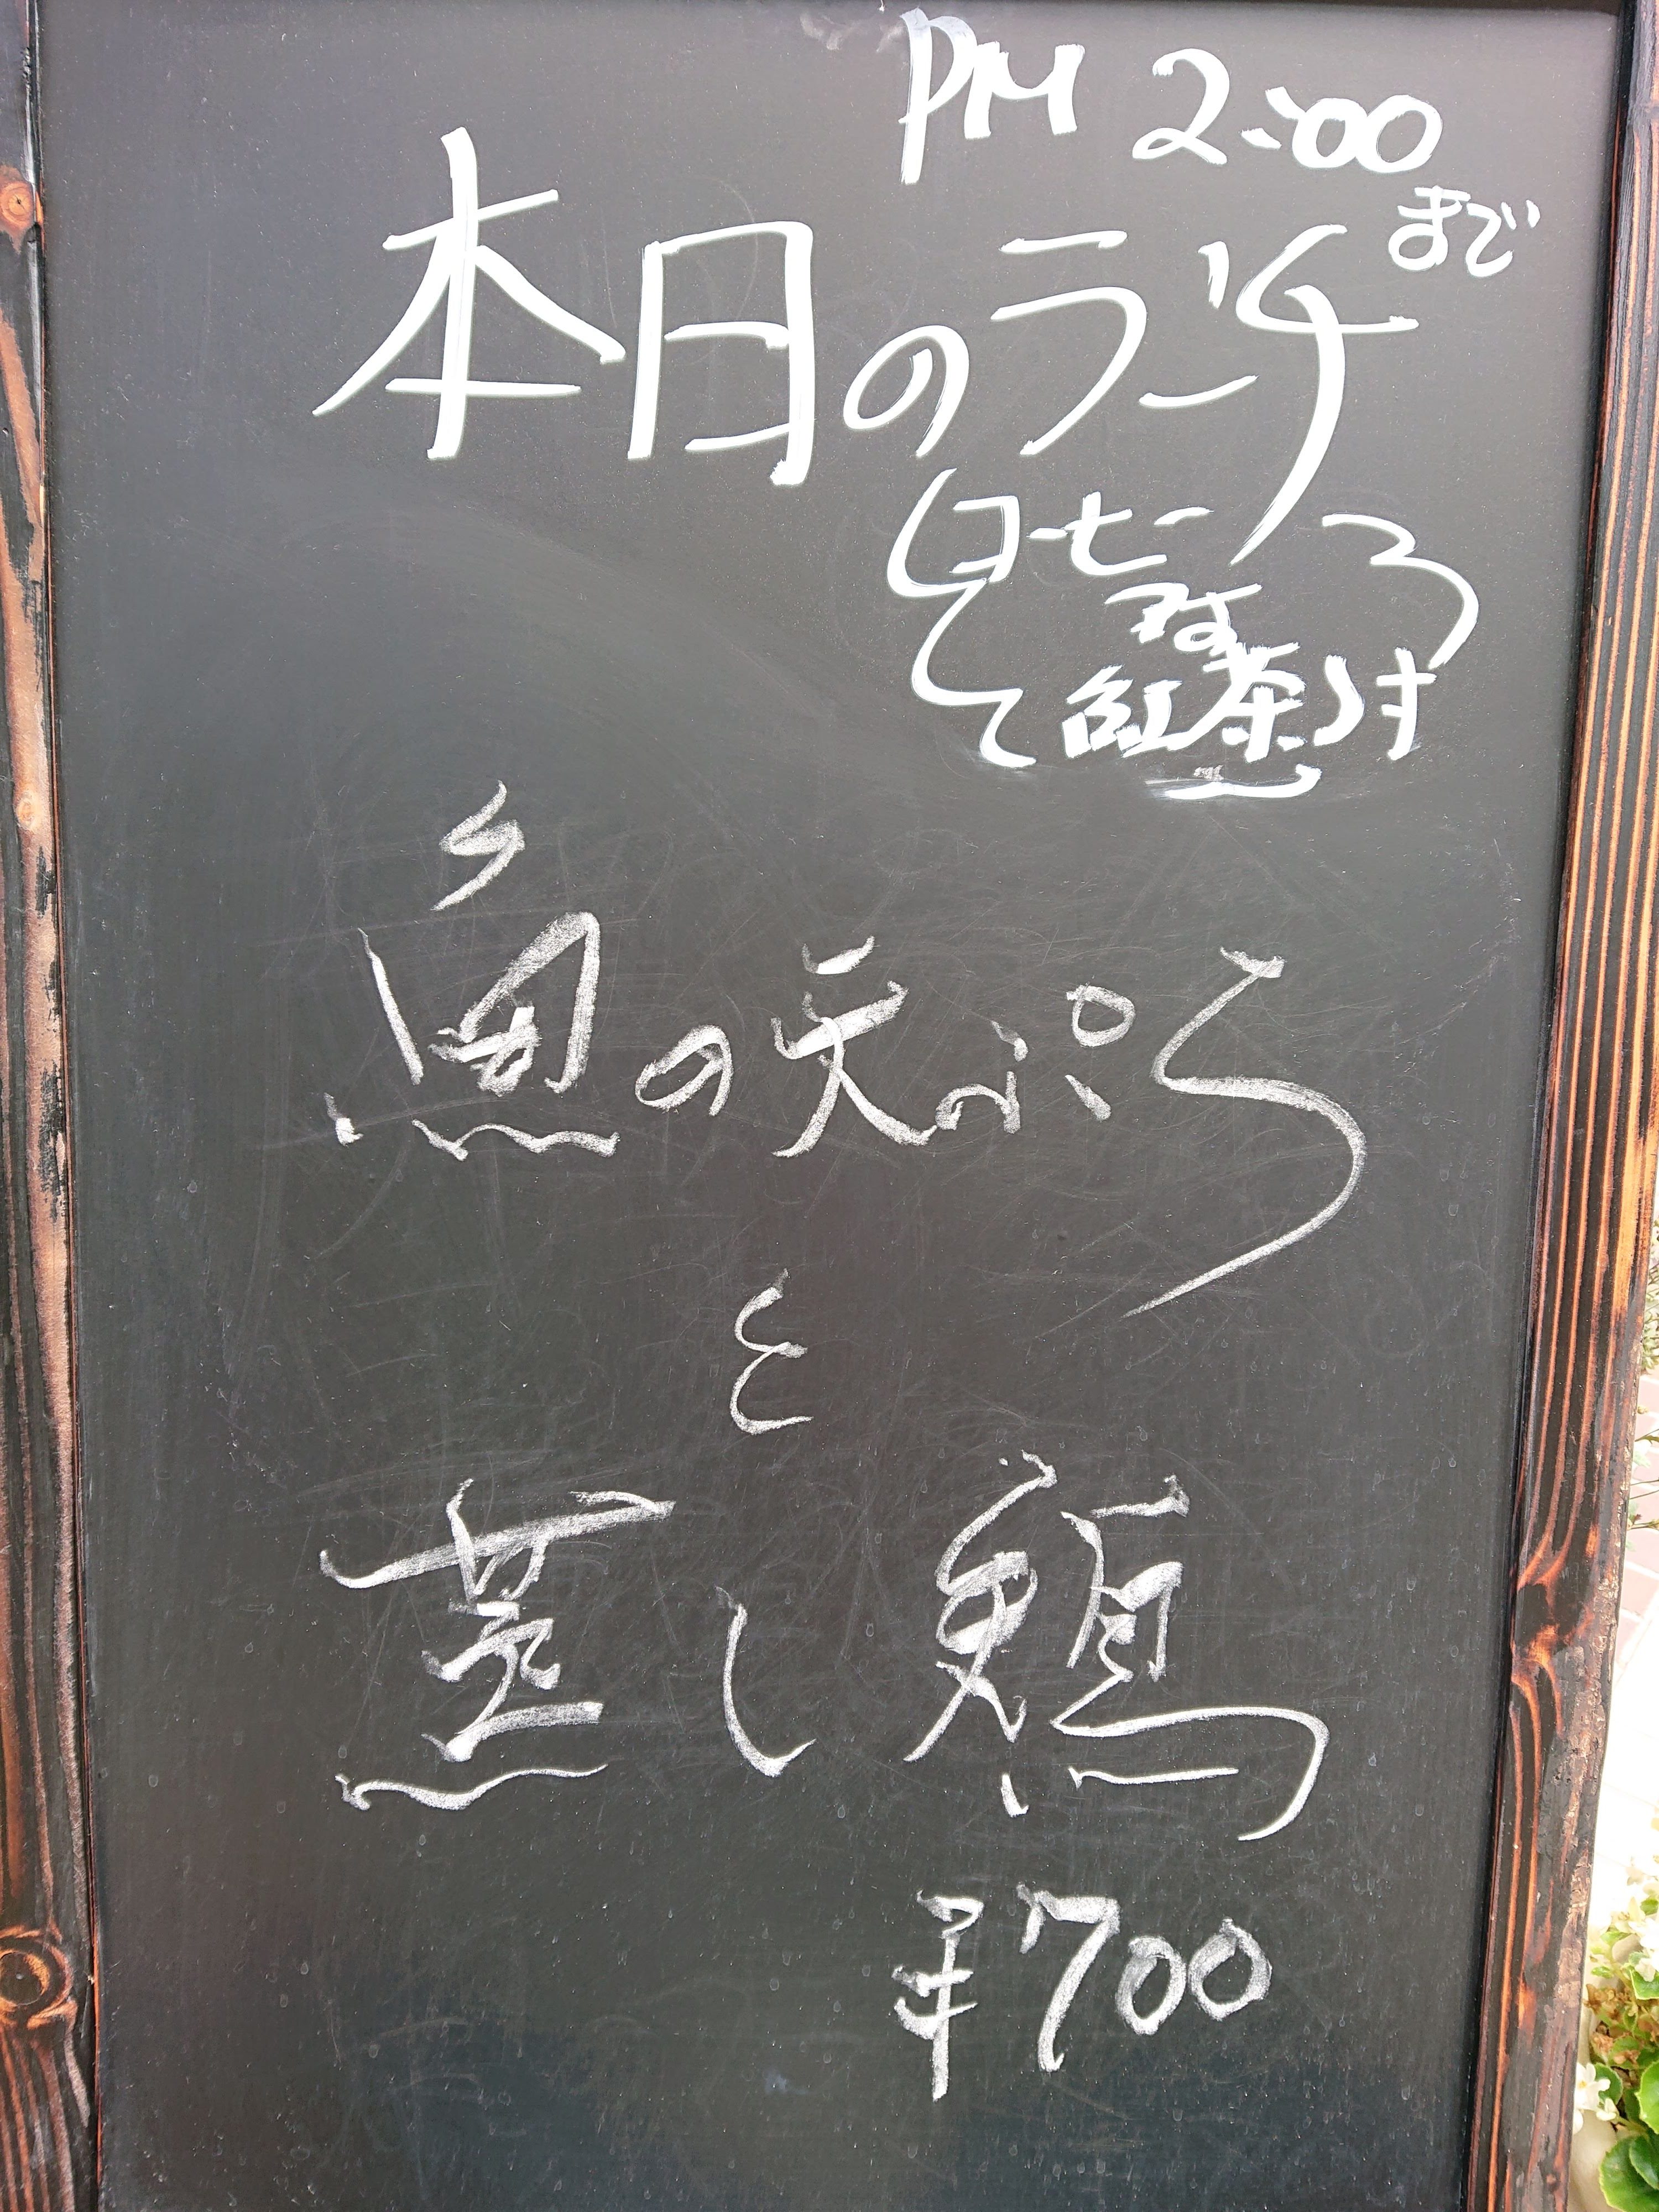 PM 2:00
まで
本日のランチ
コーヒー
又は
紅茶付
魚の天ぷら
と
蒸し鶏
¥700